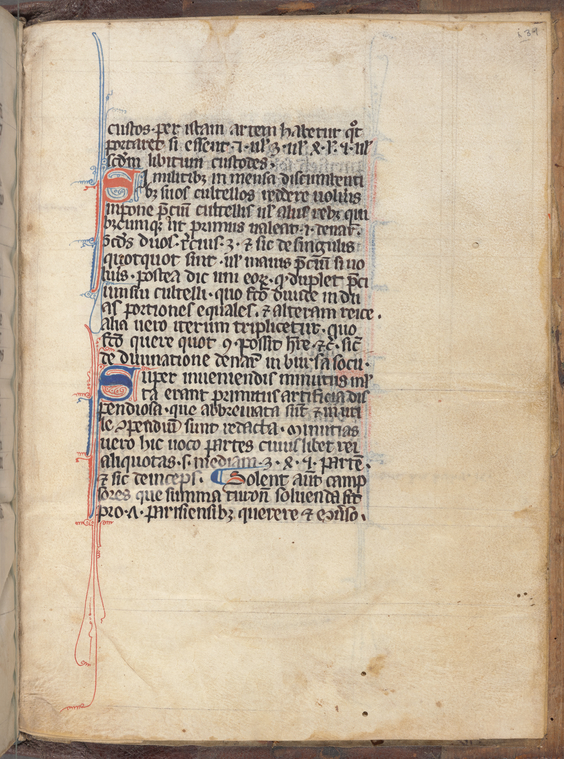 i 39
custos · per istam artem habetur qͦt
portaret si essent · 7 · ul' 3 · ul' & · ul'
scd'm libitum custodes ·
Si militibꝫ in mensa discumbenti
bꝫ suos cultellos reddere uolueris
impone p̄cium cultellis ul' aliis rebꝫ qui
buscumqꝫ ut primus ualeat · denar̄ ·
scd's duos · tcius · 3 · & sic de singulis
quotquot sint · ul' maius p̄cium si uo
luis · postea dic uni eoꝝ · q duplet p̄ci
um sui cultelli · quo fc̄o diuide in du
as portiones equales · & alteram reice ·
alia uero iterum triplicetur · quo
fc̄o quere quot 9 · possit hr̄e · &c̄ · sic̄
de diuinatione denar̄ in bursa socii ·
Super inueniendis minutiis ml'
ta erant primitus artificia dis
pendiosa · que abbreuiata sūt & in uti
le ꝯpendiū sunt redacta · Minutias
uero hic uoco partes cuius libet rei
aliquotas · s · mediam · 3 · & · 4 · partē ·
& sic deinceps · Solent aūt camp
sores que summa turon̄ soluenda sit
pro · a · parisiensibꝫ querere & ·